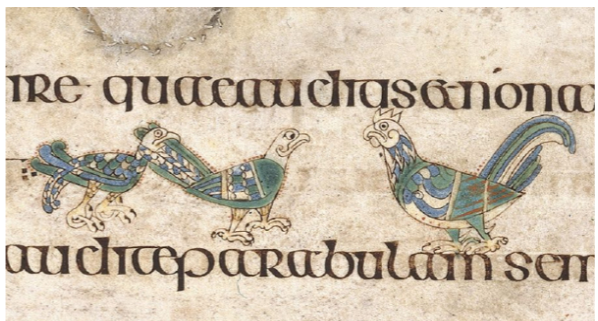 ire quaeauditis & non a
auditae parabulam sem